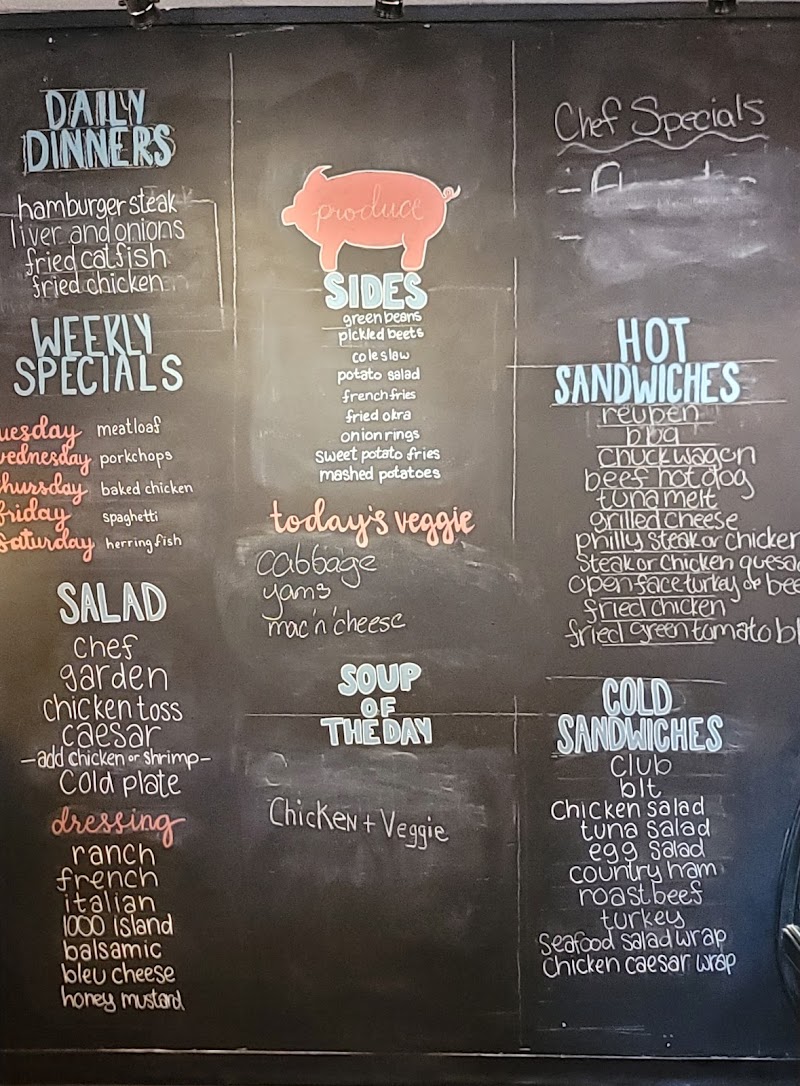 DAILY
DINNERS
hamburger steak
liver and onions
fried catfish
fried chicken
WEEKLY
SPECIALS
uesday meatloaf
wednesday porkchops
thursday baked chicken
friday spaghetti
saturday herring fish
SALAD
chef
garden
chicken toss
caesar
-add chicken or shrimp-
Cold plate
dressing
ranch
french
italian
1000 island
balsamic
bleu cheese
honey mustard
produce
SIDES
green beans
pickled beets
coleslaw
potato salad
french fries
fried okra
onion rings
sweet potato fries
mashed potatoes
today's veggie
cabbage
yams
mac'n'cheese
SOUP
OF
THE DAY
Chicken + Veggie
Chef Specials
HOT
SANDWICHES
reuben
bbq
chuckwagon
beef hot dog
tuna melt
grilled cheese
philly steak or chicken
steak or chicken quesa
open face turkey or bee
fried chicken
fried green tomato bl
COLD
SANDWICHES
club
blt
Chicken salad
tuna salad
egg salad
country ham
roast beef
turkey
Seafood salad wrap
Chicken caesar wrap